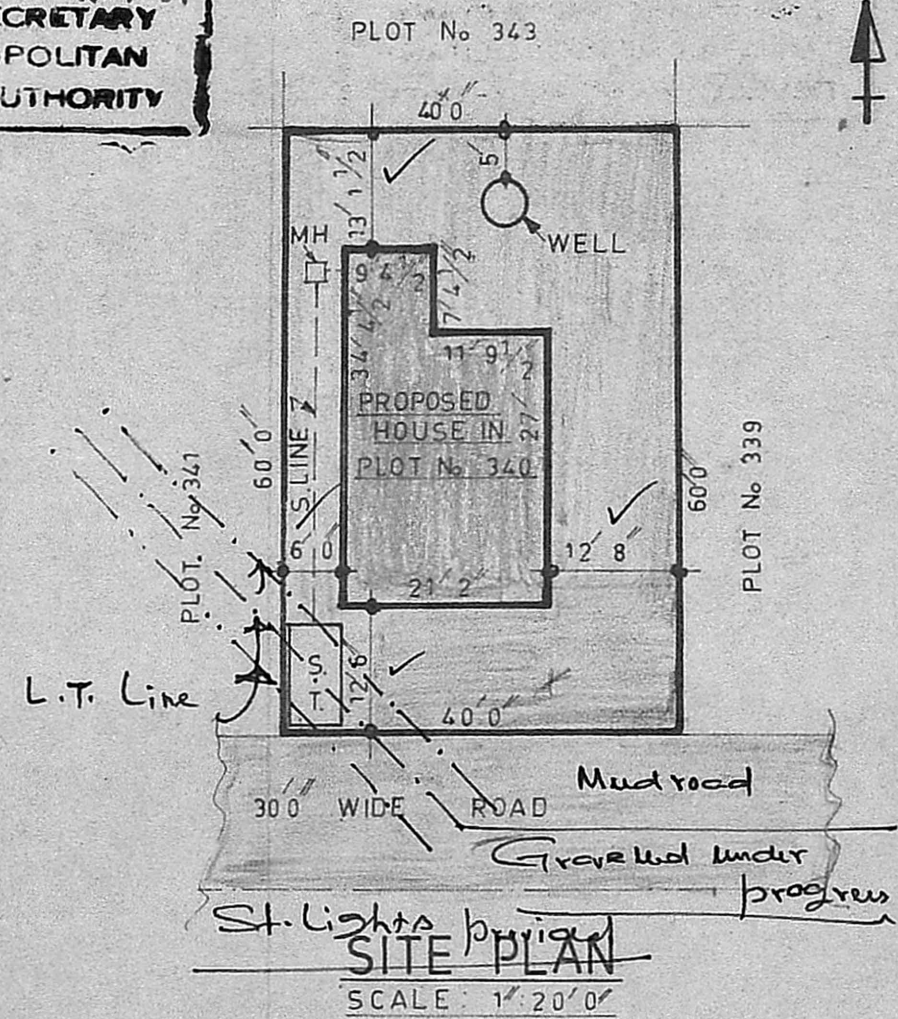 CRETARY
POLITAN
UTHORITY
PLOT No 343
40'0"
13' 1 1/2
5'
WELL
MH
9' 4 1/2
7' 4 1/2
34' 4 1/2
11' 9 1/2
27'
PROPOSED
HOUSE IN
PLOT No 340
S. LINE
60'0"
PLOT No 341
60'0
PLOT No 339
6' 0"
12' 8"
21' 2"
L.T. Line
S.
T.
12' 8
40'0"
Mud road
30'0" WIDE ROAD
Gravelled under
progress
St. Lights
SITE PLAN
SCALE: 1":20'0"